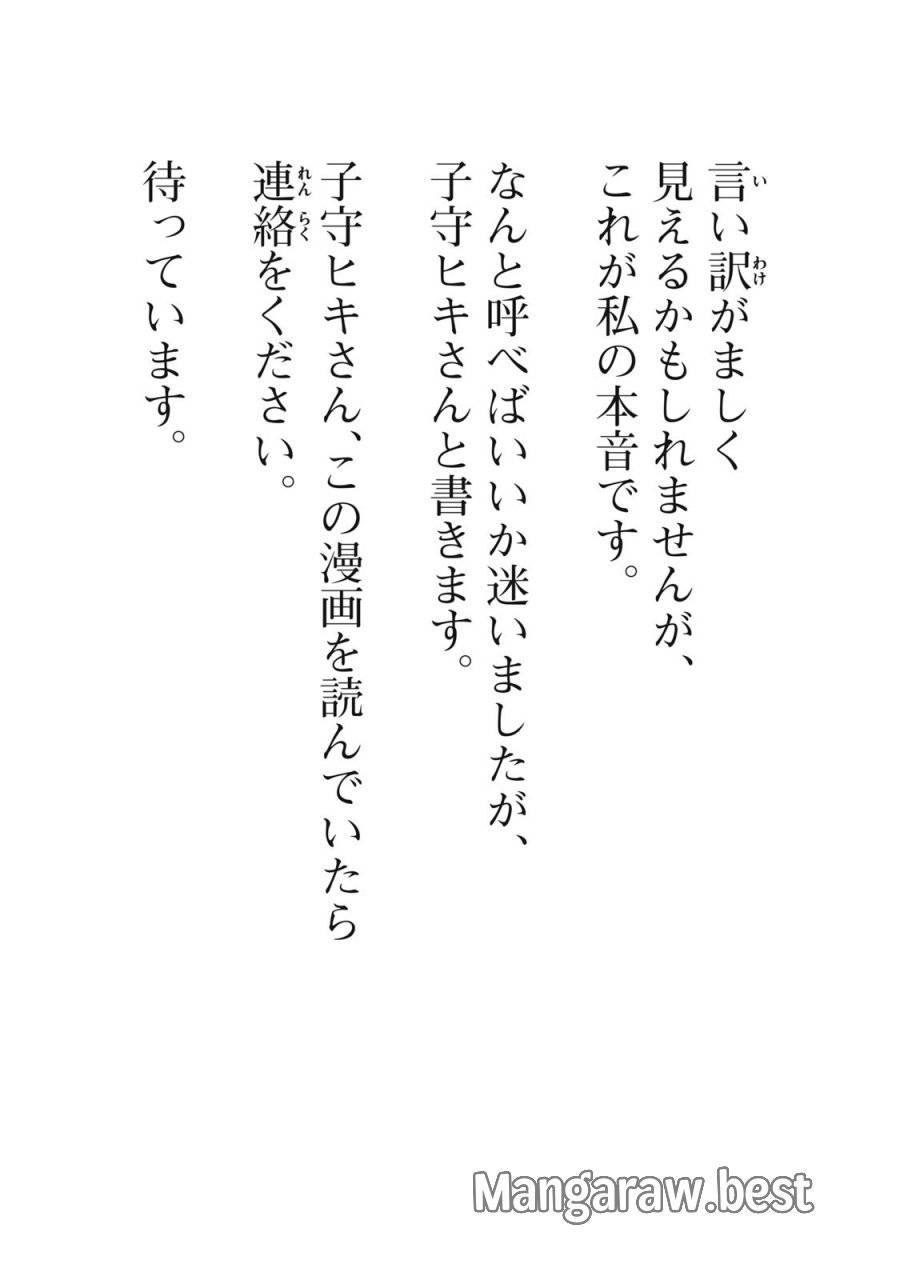 言い訳がましく
見えるかもしれませんが、
これが私の本音です。
なんと呼べばいいか迷いましたが、
子守ヒキさんと書きます。
子守ヒキさん、この漫画を読んでいたら
連絡をください。
待っています。
Mangaraw.best